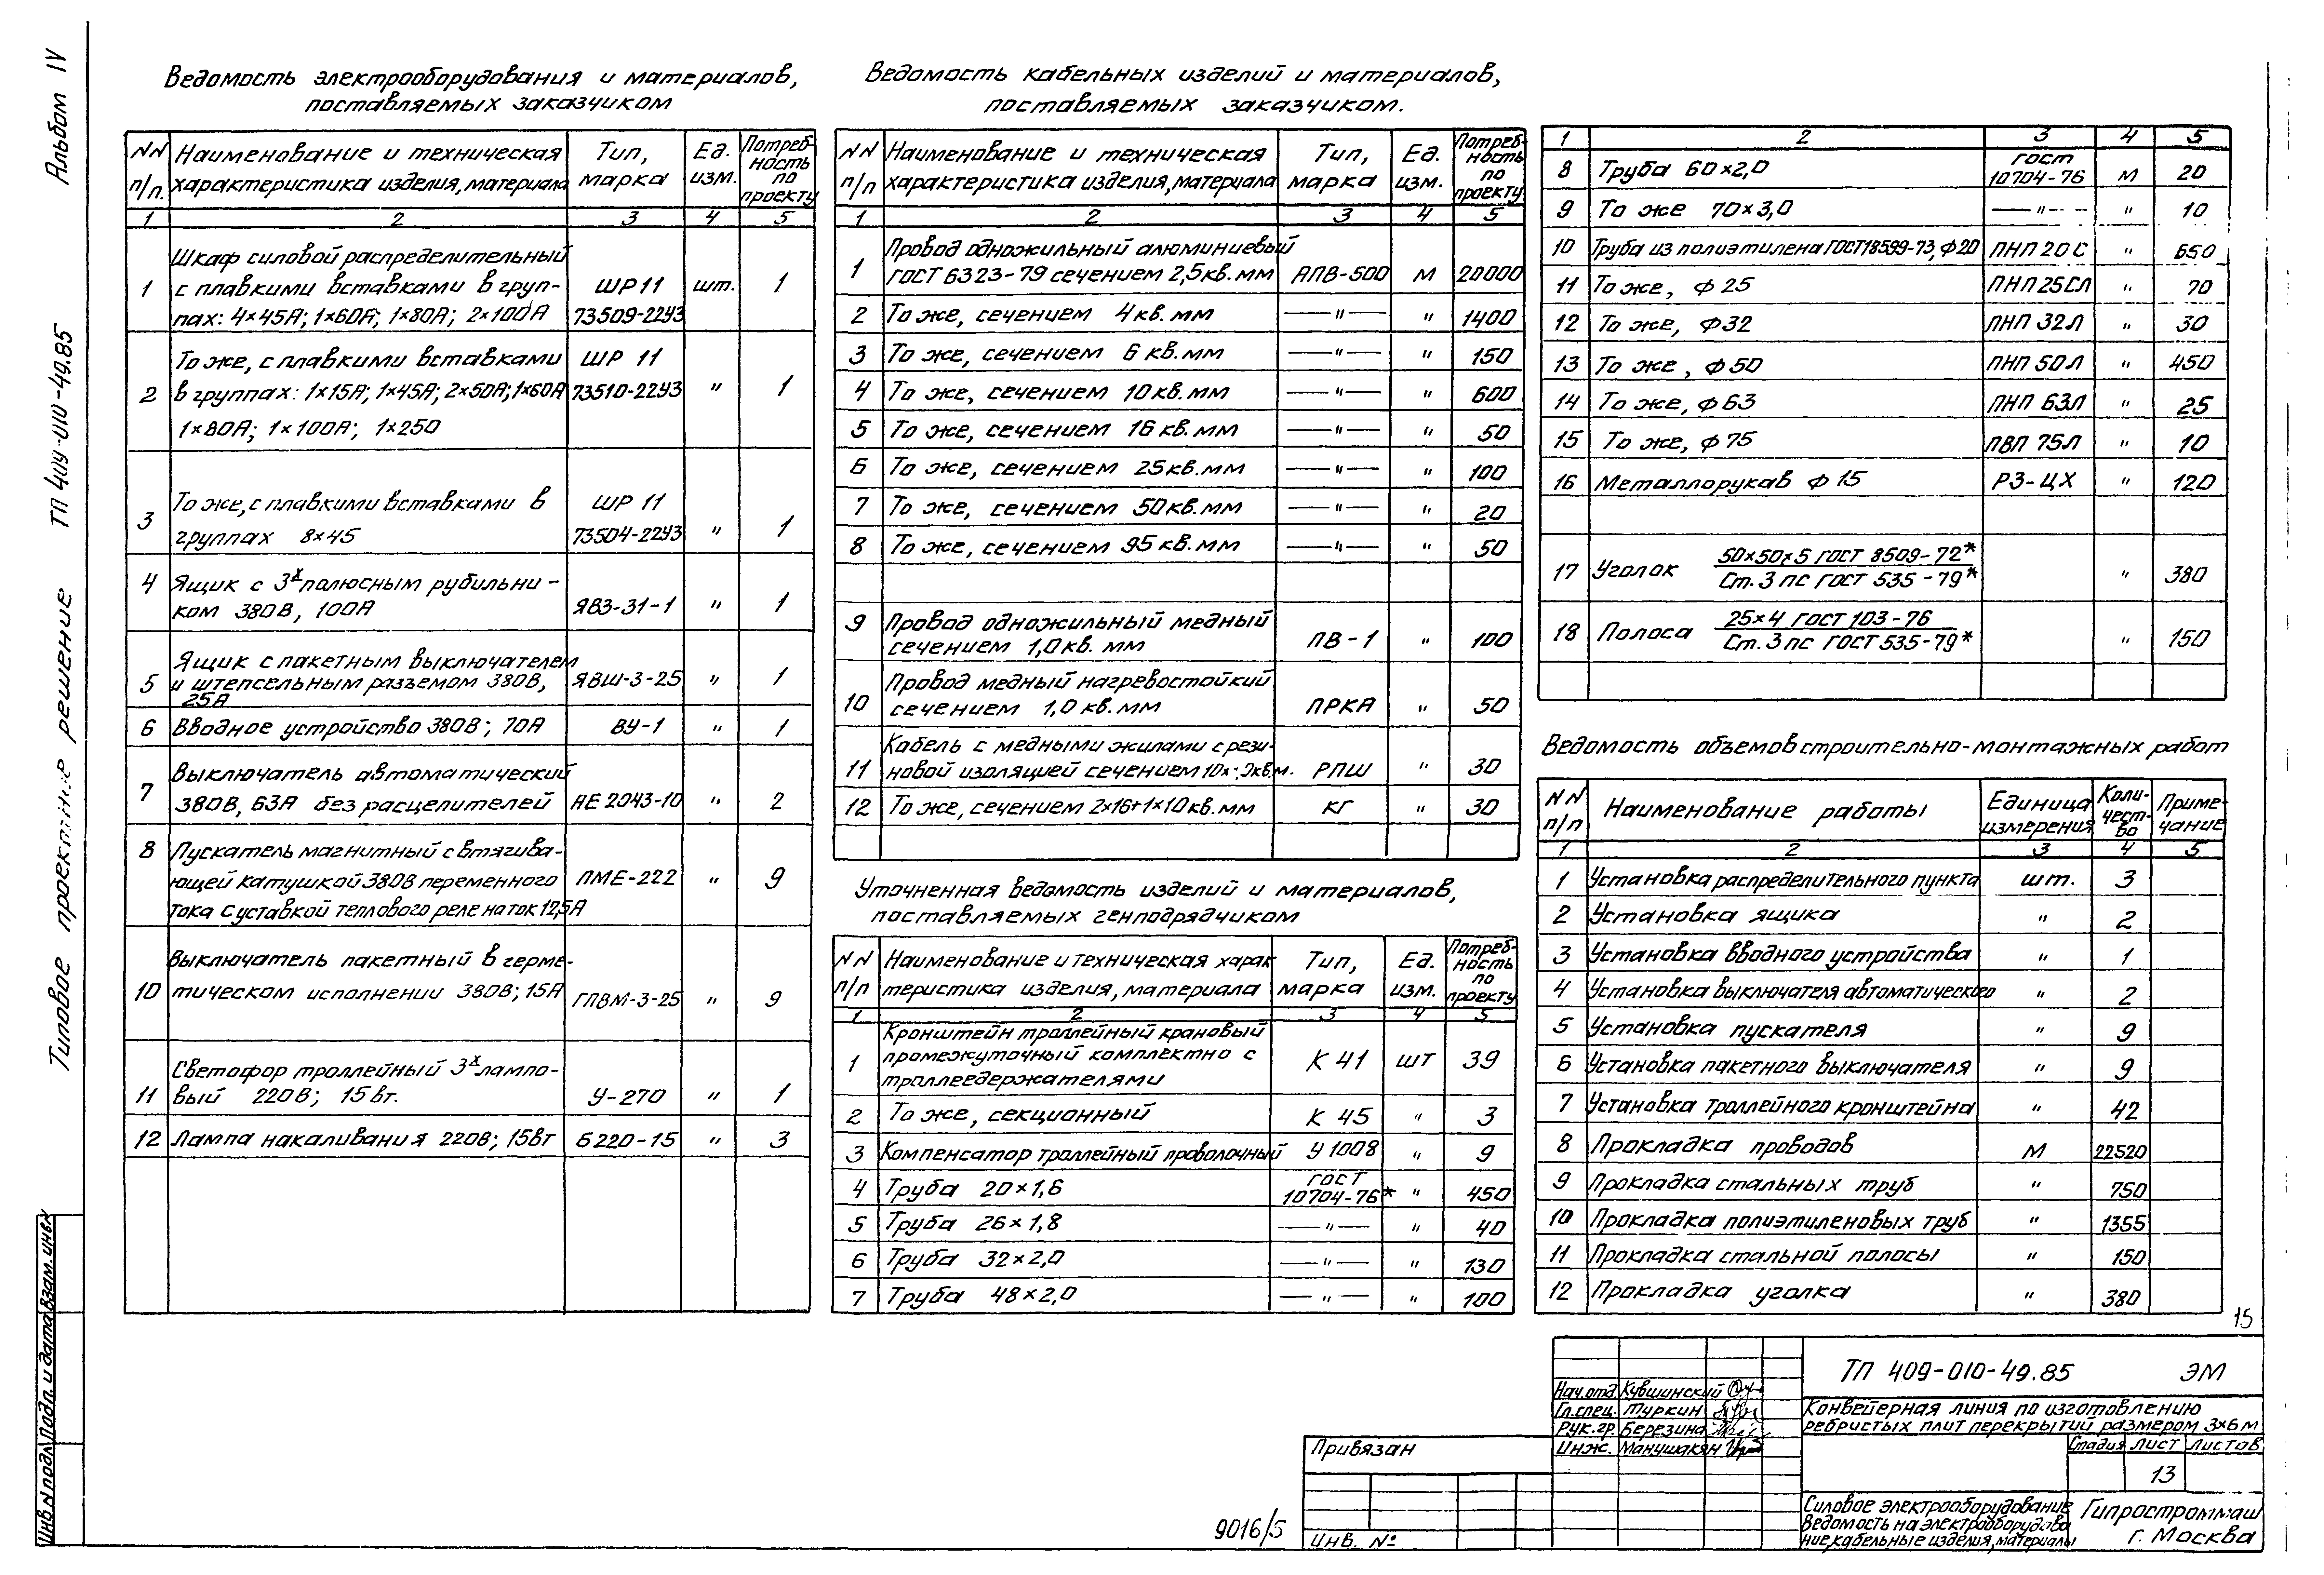 Альбом IV
ТП 409-010-49.85
Типовое проектные решение
Ведомость электрооборудования и материалов,
поставляемых заказчиком
NN п/п. | Наименование и техническая характеристика изделия, материала | Тип, марка | Ед. изм. | Потреб-ность по проекту
1 | 2 | 3 | 4 | 5
1 | Шкаф силовой распределительный с плавкими вставками в груп-пах: 4×45А; 1×60А; 1×80А; 2×100А | ШР 11 73509-22У3 | шт. | 1
2 | То же, с плавкими вставками в группах: 1×15А; 1×45А; 2×50А; 1×60А 1×80А; 1×100А; 1×250 | ШР 11 73510-22У3 | " | 1
3 | То же, с плавкими вставками в группах 8×45 | ШР 11 73504-22У3 | " | 1
4 | Ящик с 3х полюсным рубильни-ком 380В, 100А | ЯВЗ-31-1 | " | 1
5 | Ящик с пакетным выключателем и штепсельным разъемом 380В, 25А | ЯВШ-3-25 | " | 1
6 | Вводное устройство 380В; 70А | ВУ-1 | " | 1
7 | Выключатель автоматический 380В, 63А без расцепителей | АЕ 2043-10 | " | 2
8 | Пускатель магнитный с втягива-ющей катушкой 380В переменного тока с уставкой теплового реле на ток 12,5А | ПМЕ-222 | " | 9
10 | Выключатель пакетный в герме-тическом исполнении 380В; 15А | ГПВМ-3-25 | " | 9
11 | Светофор троллейный 3х лампо-вый 220В; 15вт. | У-270 | " | 1
12 | Лампа накаливания 220В; 15вт | Б220-15 | " | 3
Ведомость кабельных изделий и материалов,
поставляемых заказчиком.
NN п/п | Наименование и техническая характеристика изделия, материала | Тип, марка | Ед. изм. | Потреб-ность по проекту
1 | 2 | 3 | 4 | 5
1 | Провод одножильный алюминиевый ГОСТ 6323-79 сечением 2,5кв.мм | АПВ-500 | м | 20000
2 | То же, сечением 4кв.мм | —"— | " | 1400
3 | То же, сечением 6 кв.мм | —"— | " | 150
4 | То же, сечением 10кв.мм | —"— | " | 600
5 | То же, сечением 16 кв.мм | —"— | " | 50
6 | То же, сечением 25кв.мм | —"— | " | 100
7 | То же, сечением 50кв.мм | —"— | " | 20
8 | То же, сечением 95кв.мм | —"— | " | 50
9 | Провод одножильный медный сечением 1,0кв. мм | ПВ-1 | " | 100
10 | Провод медный нагревостойкий сечением 1,0 кв.мм | ПРКА | " | 50
11 | Кабель с медными жилами с рези-новой изоляцией сечением | РПШ | " | 30
12 | То же, сечением 2×16+1×10кв.мм | КГ | " | 30
Уточненная ведомость изделий и материалов,
поставляемых генподрядчиком
NN п/п | Наименование и техническая харак теристика изделия, материала | Тип, марка | Ед. изм. | Потреб-ность по проекту
1 | 2 | 3 | 4 | 5
1 | Кронштейн троллейный крановый промежуточный комплектно с троллеедержателями | К 41 | шт | 39
2 | То же, секционный | К 45 | " | 3
3 | Компенсатор троллейный проволочный | У 1008 | " | 9
4 | Труба 20×1,6 | ГОСТ 10704-76* | " | 450
5 | Труба 26×1,8 | —"— | " | 40
6 | Труба 32×2,0 | —"— | " | 130
7 | Труба 48×2,0 | —"— | " | 100
1 | 2 | 3 | 4 | 5
8 | Труба 60×2,0 | ГОСТ 10704-76 | м | 20
9 | То же 70×3,0 | —"— | " | 10
10 | Труба из полиэтилена ГОСТ18599-73, Ф20 | ПНП 20С | " | 650
11 | То же, Ф 25 | ПНП25СЛ | " | 70
12 | То же, Ф32 | ПНП 32Л | " | 30
13 | То же, Ф50 | ПНП 50Л | " | 450
14 | То же, Ф63 | ПНП 63Л | " | 25
15 | То же, Ф75 | ПВП 75Л | " | 10
16 | Металлорукав Ф 15 | РЗ-ЦХ | " | 120
17 | Уголок 50×50×5 ГОСТ 8509-72* Ст. 3 пс ГОСТ 535-79* | " | 380
18 | Полоса 25×4 ГОСТ 103-76 Ст. 3 пс ГОСТ 535-79* | " | 150
Ведомость объемов строительно-монтажных работ
NN п/п | Наименование работы | Единица измерения | Коли-чест-во | Приме-чание
1 | 2 | 3 | 4 | 5
1 | Установка распределительного пункта | шт. | 3
2 | Установка ящика | " | 2
3 | Установка вводного устройства | " | 1
4 | Установка выключателя автоматического | " | 2
5 | Установка пускателя | " | 9
6 | Установка пакетного выключателя | " | 9
7 | Установка троллейного кронштейна | " | 42
8 | Прокладка проводов | м | 22520
9 | Прокладка стальных труб | " | 750
10 | Прокладка полиэтиленовых труб | " | 1355
11 | Прокладка стальной полосы | " | 150
12 | Прокладка уголка | " | 380
15
Инв.N подл. Подп. и дата Взам. инв.N
9016/5
Привязан
Инв. №
Нач.отд. Кувшинский
Гл.спец. Туркин
Рук.гр. Березина
Инж. Манушакян
ТП 409-010-49.85 ЭМ
Конвейерная линия по изготовлению
ребристых плит перекрытий размером 3×6м
Стадия Лист Листов
13
Силовое электрооборудование
Ведомость на электрооборудова
ние, кабельные изделия, материалы
Гипростроммаш
г. Москва